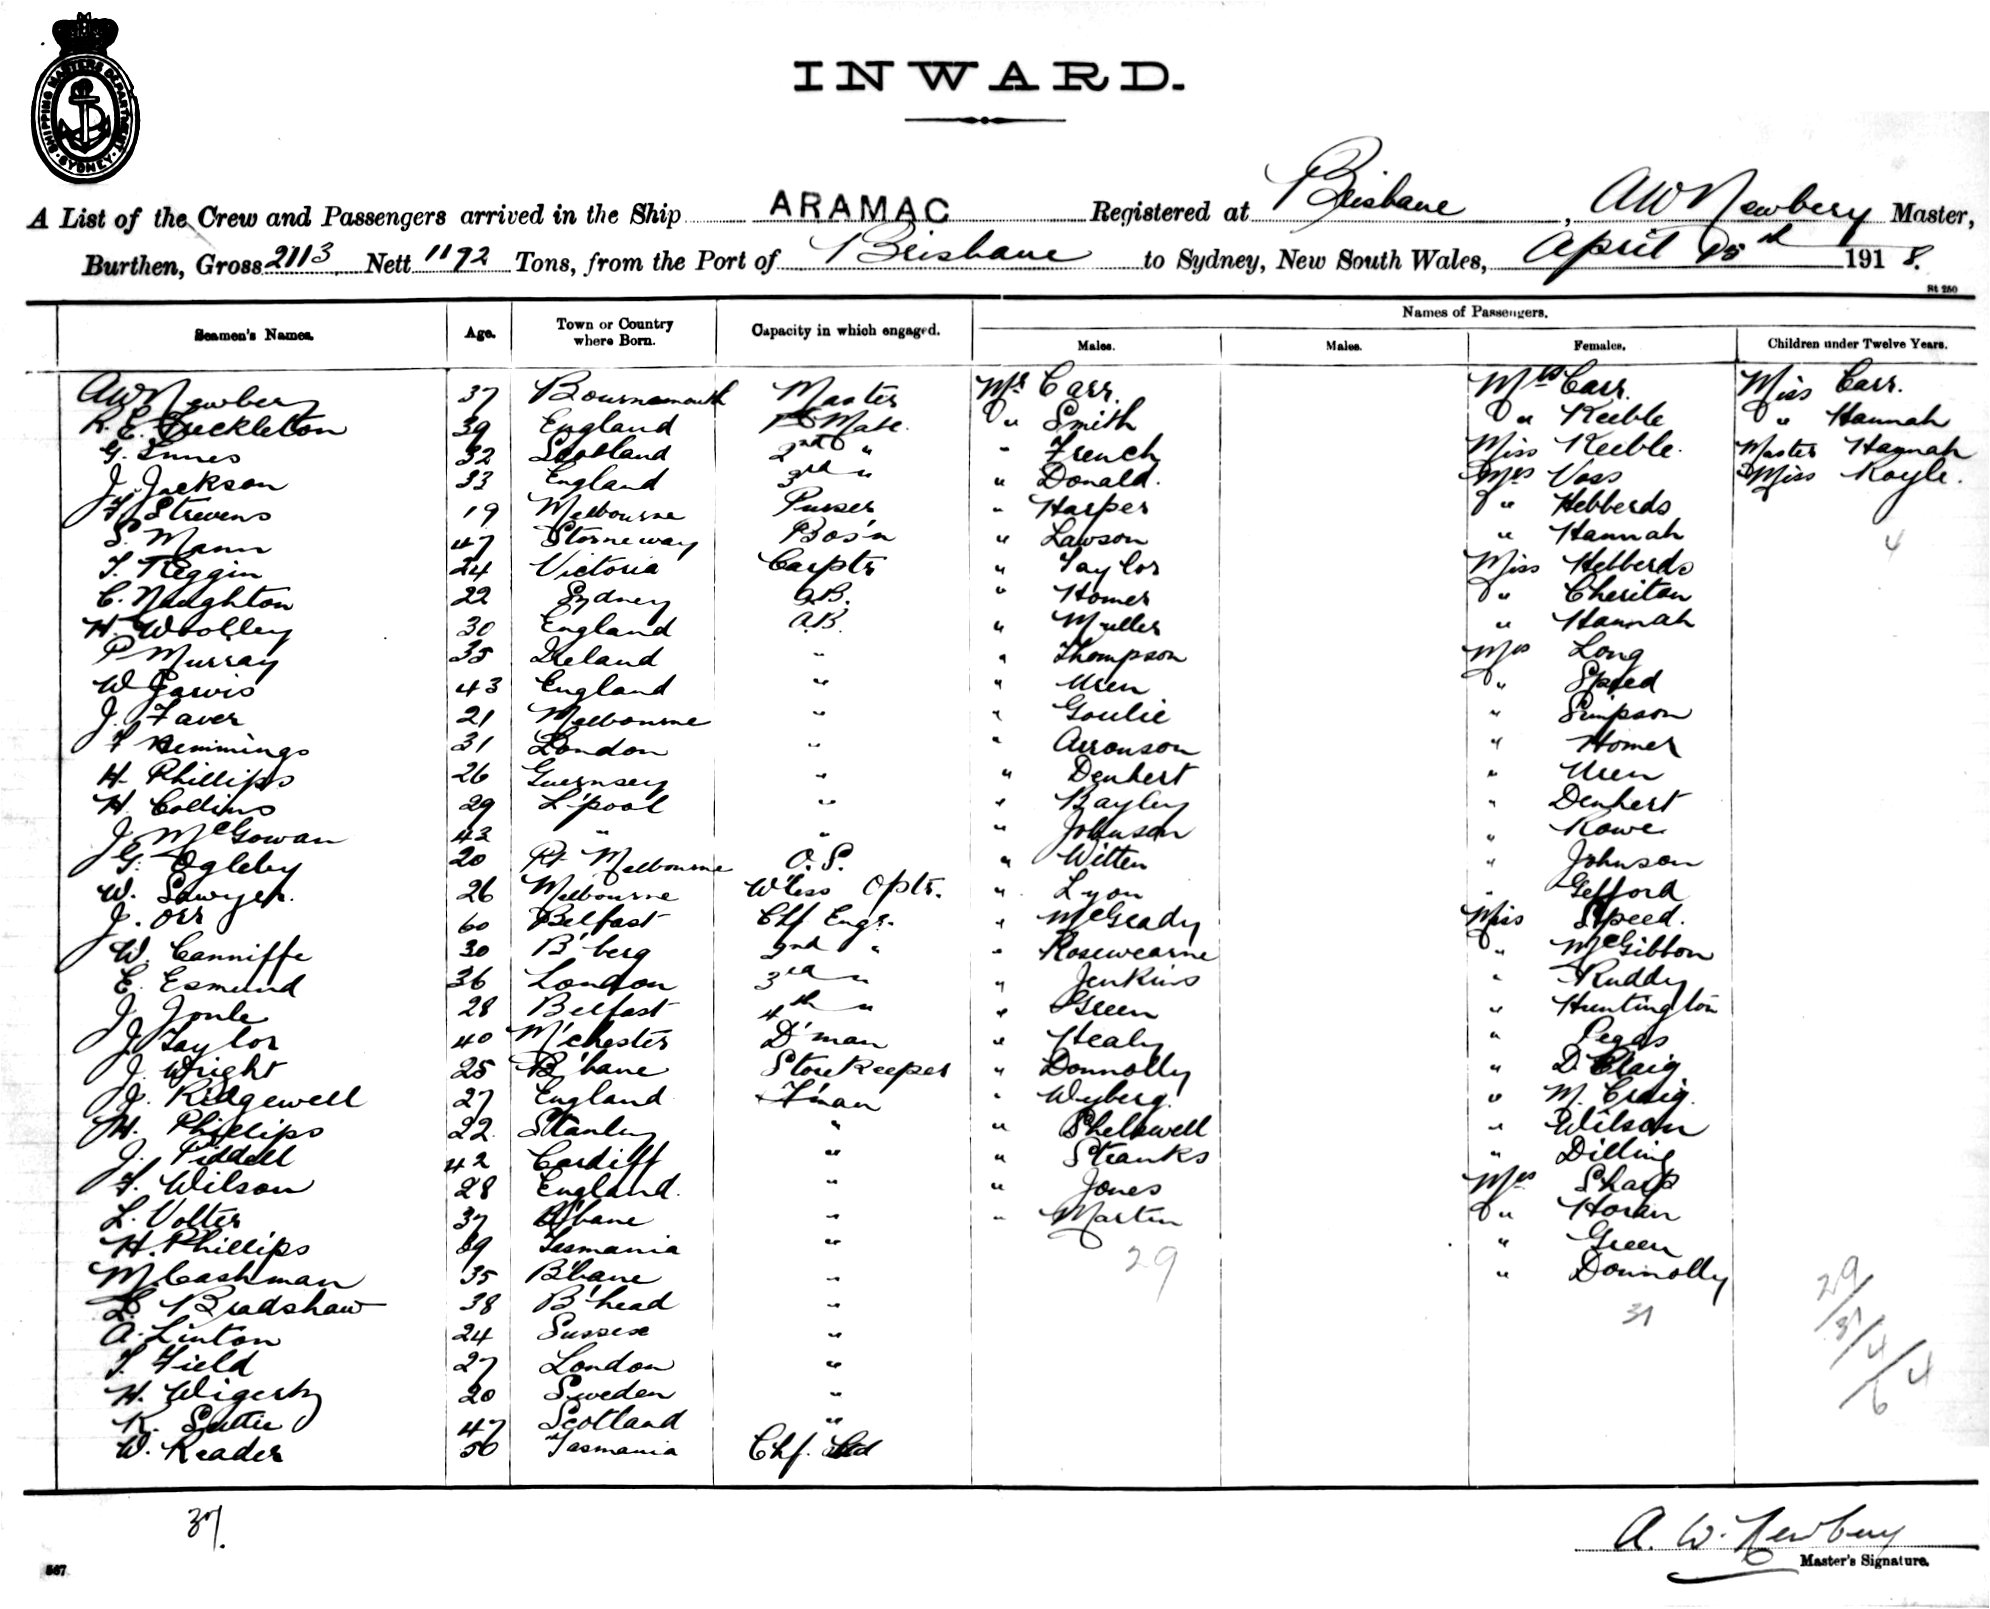 SHIPPING MASTERS DEPARTMENT
SYDNEY
INWARD.
A List of the Crew and Passengers arrived in the Ship ARAMAC Registered at Brisbane, AW Newbery Master,
Burthen, Gross 2113 Nett 1192 Tons, from the Port of Brisbane to Sydney, New South Wales, April 15th 1918.
St 250
Names of Passengers.
Seamen's Names. Age. Town or Country where Born. Capacity in which engaged. Males. Males. Females. Children under Twelve Years.
AW Newbery 37 Bournemouth Master Mr Carr. Mrs Carr. Miss Carr.
R. E. Huckleton 39 England 1st Mate. " Smith " Keeble " Hannah
G. Innes 32 Scotland 2nd " " French Miss Keeble. Master Hannah
J. Jackson 33 England 3rd " " Donald. Mrs Voss Miss Royle.
F. Strevens 19 Melbourne Purser " Harper " Hebberds
S. Mann 47 Storneway Bos'n " Lawson " Hannah 4
T. Keggin 24 Victoria Carptr " Taylor Miss Hebberds
C. Naughton 22 Sydney A.B. " Homer " Cheriton
H. Woolley 30 England A.B. " Muller " Hannah
P Murray 35 Ireland " " Thompson Mrs Long
W Jarvis 43 England " " Uren " Speed
J. Faver 21 Melbourne " " Goulie " Simpson
F Hemmings 31 London " " Arronson " Homer
H. Phillips 26 Guernsey " " Denhert " Uren
H. Collins 29 L'pool " " Bayley " Denhert
J. McGowan 43 " " " Johnson " Rowe
G. Ogleby 20 Pt Melbourne O.S. " Witten " Johnson
W. Sawyer. 26 Melbourne W'less Optr. " Lyon " Gefford
J. Orr 60 Belfast Chf Engr. " McGeady Miss Speed.
W. Canniffe 30 B'berg 2nd " " Rosewearne " McGibbon
E. Esmund 36 London 3rd " " Jenkins " Ruddy
J. Joule 28 Belfast 4th " " Green " Huntington
J. Taylor 40 M'chester D'man " Healy " Pegas
J. Wright 25 B'bane Storekeeper " Donnolly " D. Craig
J. Ridgewell 27 England F'man " Wyberg. " M. Craig.
H. Phillips 22 Stanley " " Shelswell " Wilson
J. Piddell 42 Cardiff " " Stranks " Dilling
F. Wilson 28 England. " " Jones Mrs Sharp
L. Volter 37 B'bane " " Martin " Horan
H. Phillips 39 Tasmania " 29 " Green
M. Cashman 35 B'bane " " Donnolly
L. Bradshaw 38 B'head " 31 29/31/4/64
A. Linton 24 Sussex "
T. Field 27 London "
H. Wigerty 20 Sweden "
R. Suttie 47 Scotland "
W. Reader 50 Tasmania Chf. Std
37.
A. W. Newbery
Master's Signature.
567